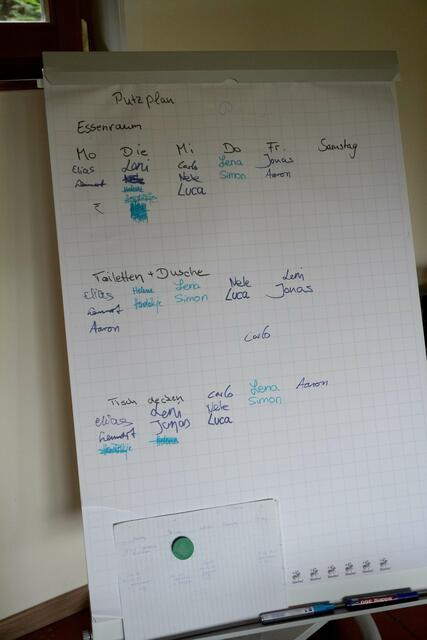 Putzplan
Essenraum
Mo Die Mi Do Fr. Samstag
Elias Leni Carlo Lena Jonas
Lennart Nele Simon Aaron
Luca
Toiletten + Dusche
Elias Helene Lena Nele Leni
Lennart Simon Luca Jonas
Aaron
Carlo
Tisch decken Carlo Lena Aaron
Elias Leni Nele Simon
Lennart Jonas Luca